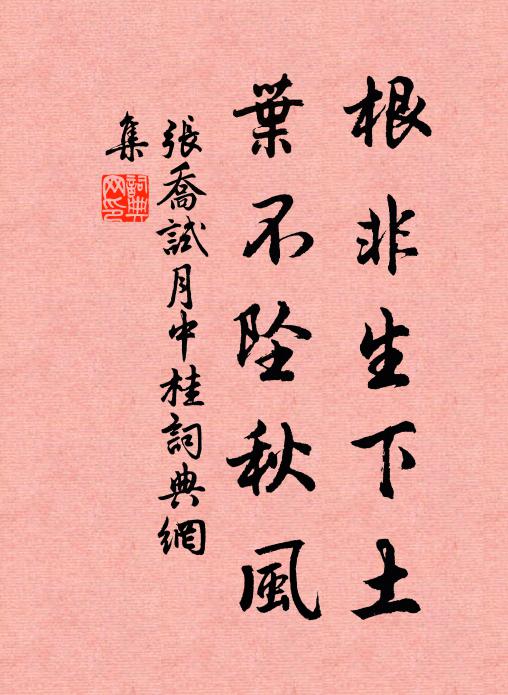 根非生下土
葉不墜秋風
張喬試月中桂詞典網
集
詞典網印